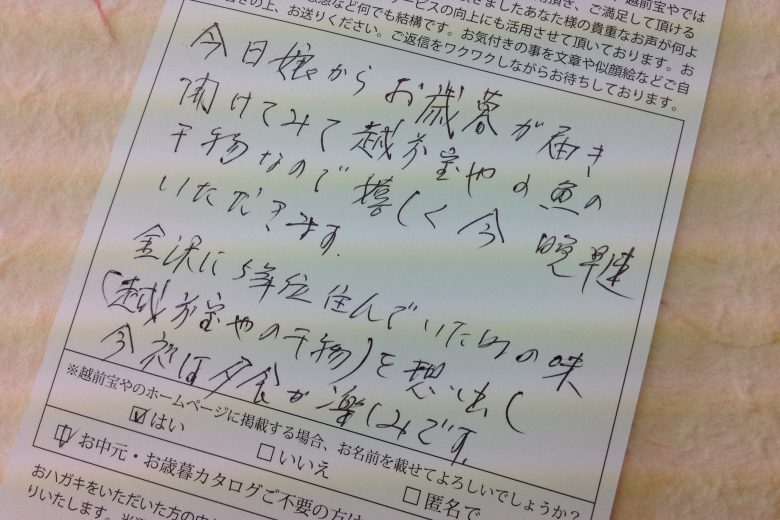 頂き、ご満足して頂ける
越前宝やでは
きましたあなた様の貴重なお声が何よ
ービスの向上にも活用させて頂いております。お
感など何でも結構です。お気付きの事を文章や似顔絵などご自
書きの上、お送りください。ご返信をワクワクしながらお待ちしております。
今日娘からお歳暮が届き
開けてみて越前宝やの魚の
干物なので嬉しく今晩早速
いただきます。
金沢に5年位住んでいた時の味
(越前宝やの干物)を想い出し
今夜は夕食が楽しみです。
※越前宝やのホームページに掲載する場合、お名前を載せてよろしいでしょうか?
☑はい
□いいえ
□匿名で
お中元・お歳暮カタログご不要の方は
おハガキをいただいた方の中
りいたします。